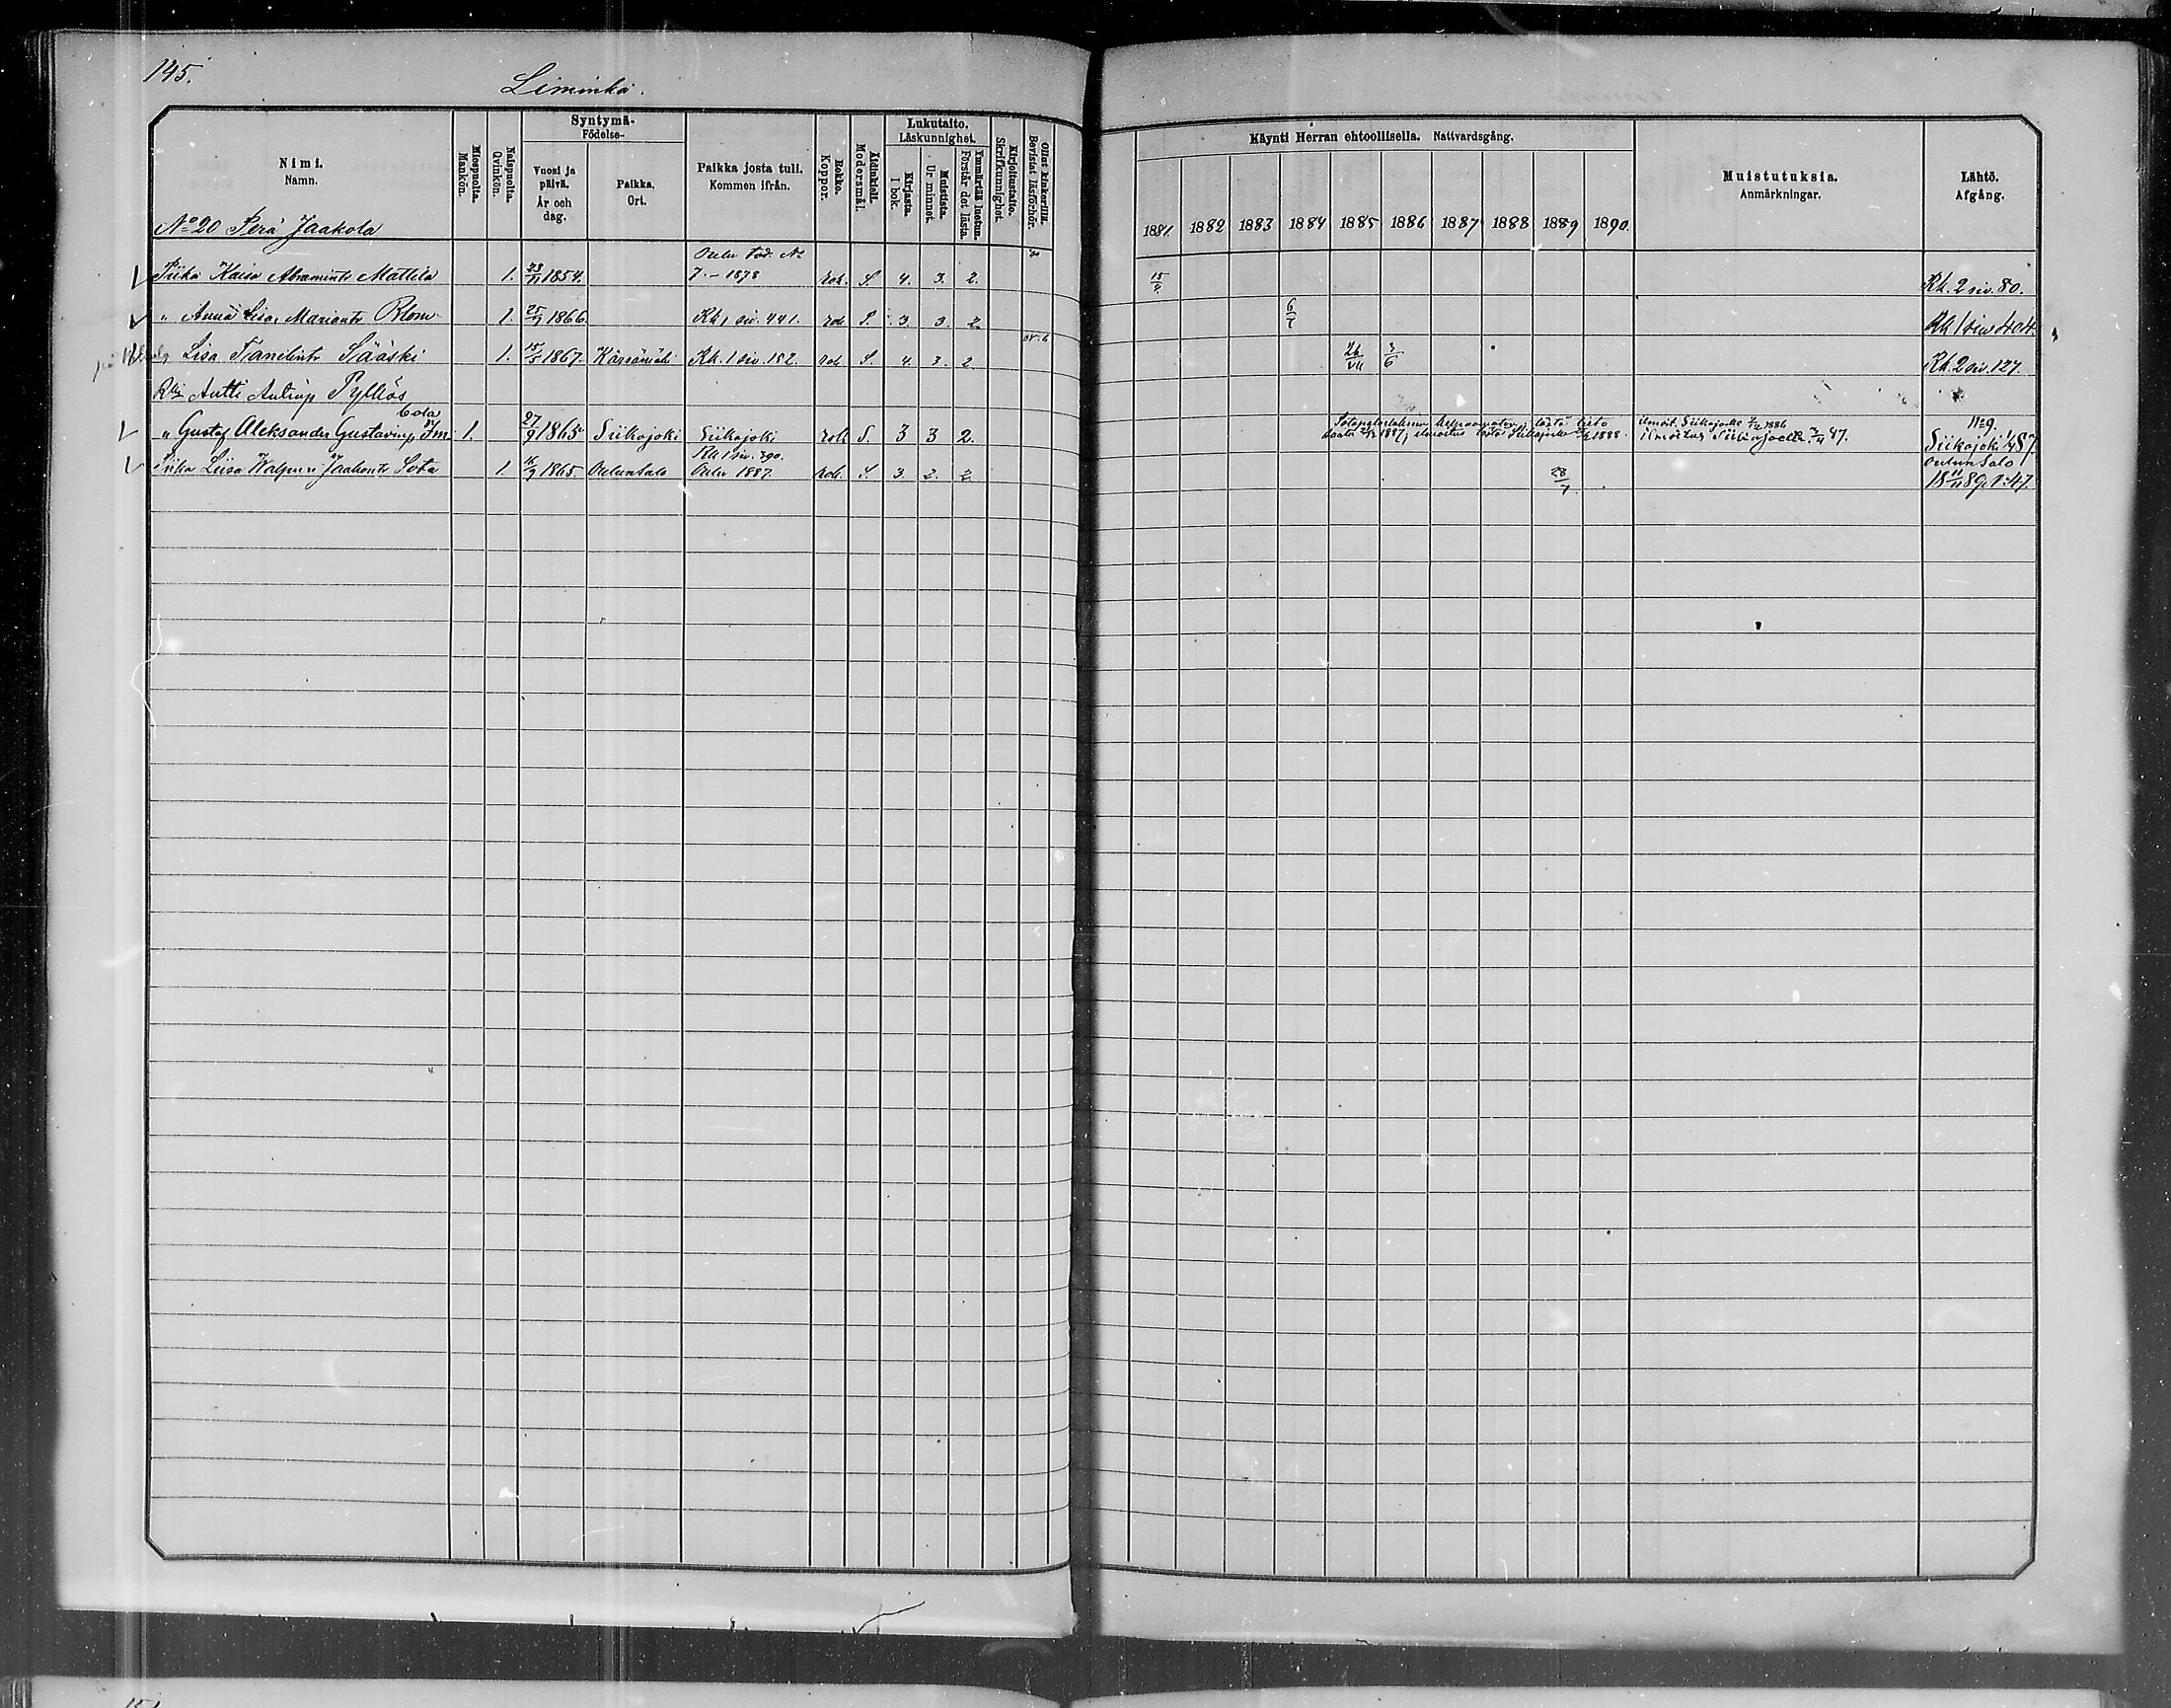 145.
Liminka.
Nimi.
Namn.
Miespuolta.
Mankön.
Naispuolta.
Qvinkön.
Syntymä-
Födelse-
Vuosi ja päivä.
År och dag.
Paikka.
Ort.
Paikka josta tuli.
Kommen ifrån.
Rokko.
Koppor.
Äidinkieli.
Modersmål.
Lukutaito.
Läskunnighet.
Kirjasta.
I bok.
Muistista.
Ur minnet.
Ymmärtää luetun.
Förstår det lästa.
Kirjoitustaito.
Skrifkunnighet.
Ollut kinkerillä.
Bevistat läsförhör.
Käynti Herran ehtoollisella. Nattvardsgång.
1881. 1882 1883 1884 1885 1886 1887 1888 1889 1890.
Muistutuksia.
Anmärkningar.
Lähtö.
Afgång.
No 20 Perä Jaakola
Piika Kaisa Abramintr Mattila 1. 1854. Oulu tod. No 7.–1878 rok. S. 4. 3. 2. 15/9. Rk. 2 siv. 80.
" Anna Lisa Mariantr Blom 1. 25/9 1866 Rk 1 siv. 441. rok S. 3 3. 2 6/7 Rk 1 siv 404.
Lisa Tanelintr Sääski 1. 15/5 1867. Kärsämäki Rk. 1 siv. 182. rok S. 4. 3. 2 26/VII 3/6 Rk. 2 siv. 127.
Antti Antinp Pylläs
" Gustaf Aleksander Gustavinp 1. 27/9 1865 Siikajoki Siikajoki rok S. 3 3 2. ilmoit. Siikajoelle 1886
saatu 1887, ilmoitus tästä Siikajoelle 1888. ilmoitus Siikajoelle 87. No 9. Siikajoki 87
Piika Liisa Walpuri Jaakontr Sota 1. 16/9 1865. Oulunsalo Rk 1 siv. 390. Oulu 1887. rok. S. 3. 2. 2. 28/7. Oulunsalo 18 11/11 89. 1:47.